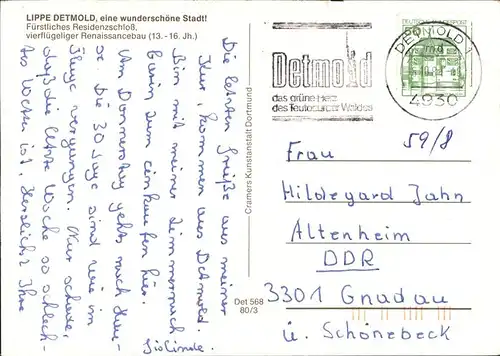 LIPPE DETMOLD, eine wunderschöne Stadt!
Fürstliches Residenzschloß,
vierflügeliger Renaissancebau (13.-16. Jh.)
Die letzten Grüße aus meiner
Kur, kommen aus Detmold.
Bin mit meiner Zimmernach
barin zum einkaufen hier.
Am Donnerstag gehts nach Hau-
se. Die 30 Tage sind wie im
Fluge vergangen. Nur schade,
daß die letzte Woche so schlech-
tes Wetter ist. Herzlichst Ihre
Cramers Kunstanstalt Dortmund
Det 568
80/3
DEUTSCHE BUNDESPOST
DETMOLD 1
4930
Detmold
das grüne Herz
des Teutoburger Waldes
59/8
Frau
Hildegard Jahn
Altenheim
DDR
3301 Gnadau
ü. Schönebeck